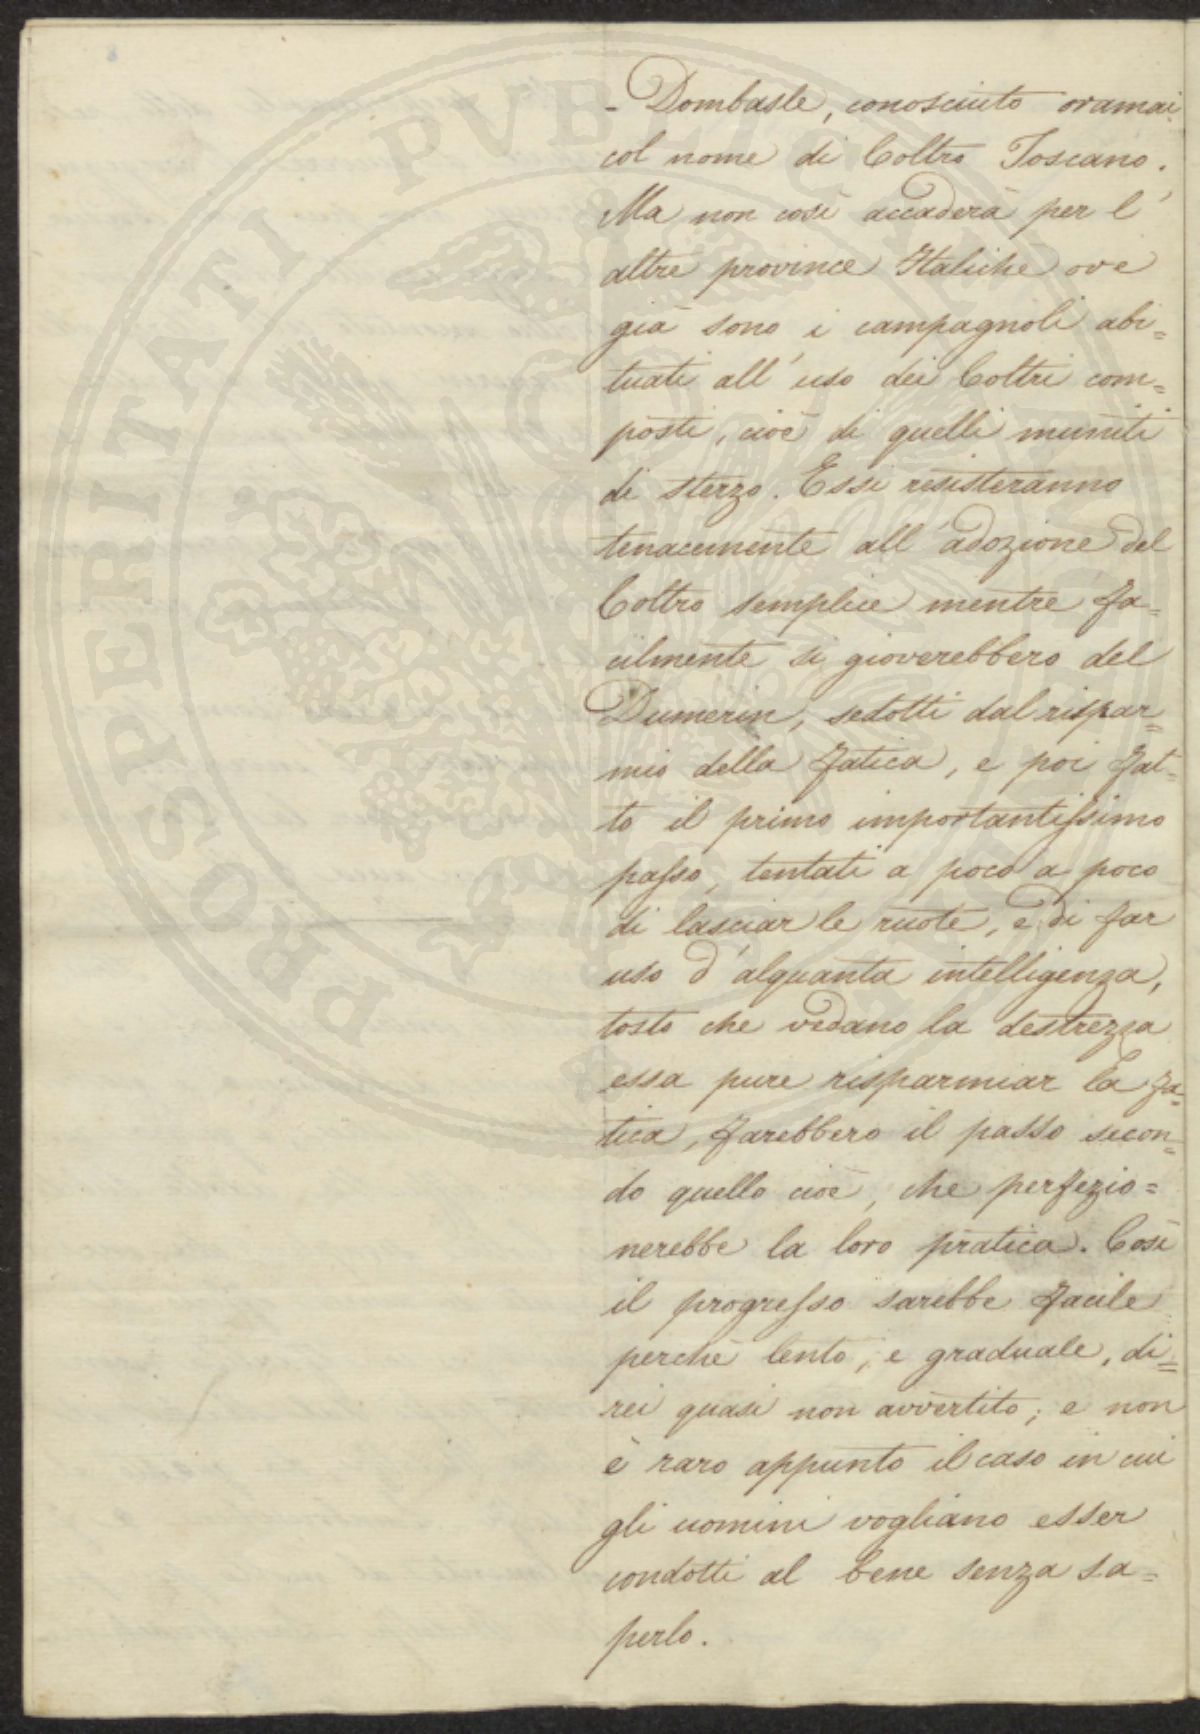 - Dombasle, conosciuto oramai
col nome di Coltro Toscano.
Ma non così accaderà per l'
altre province Italiche ove
già sono i campagnoli abi=
tuati all'uso dei Coltri com=
posti, cioè di quelli muniti
di sterzo. Essi resisteranno
tenacemente all'adozione del
Coltro semplice mentre fa=
cilmente si gioverebbero del
Dumerin, sedotti dal rispar=
mio della fatica, e poi fat=
to il primo importantissimo
passo, tentati a poco a poco
di lasciar le ruote, e di far
uso d'alquanta intelligenza,
tosto che vedano la destrezza
essa pure risparmiar la fa=
tica, farebbero il passo secon=
do quello cioè, che perfezio=
nerebbe la loro pratica. Così
il progresso sarebbe facile
perchè lento, e graduale, di=
rei quasi non avvertito; e non
è raro appunto il caso in cui
gli uomini vogliano esser
condotti al bene senza sa=
perlo.
PROSPERITATI PVBLICAE